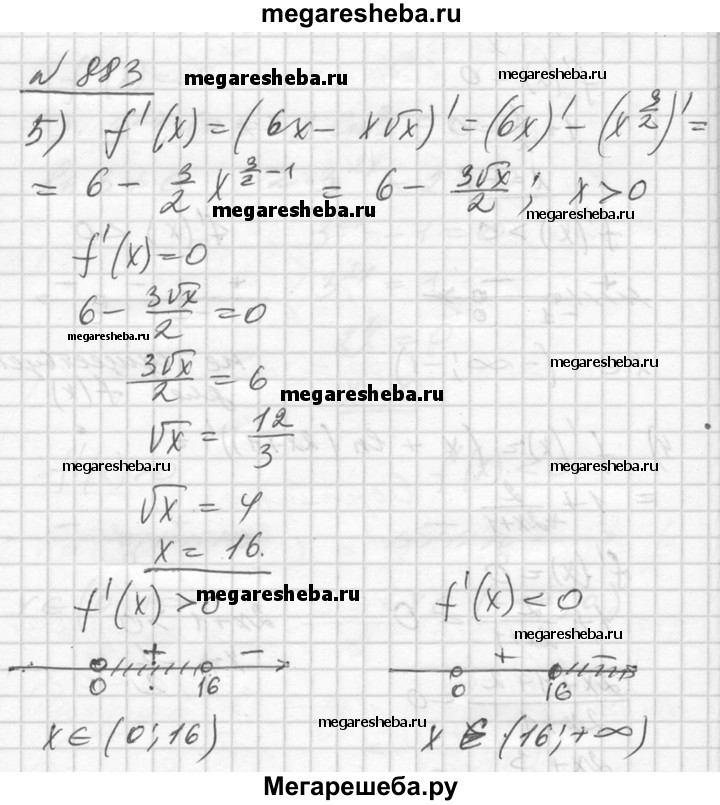 megaresheba.ru
№ 883
megaresheba.ru
megaresheba.ru
5) f'(x) = (6x − x√x)' = (6x)' − (x^(3/2))' =
= 6 − 3/2 x^(3/2 − 1) = 6 − 3√x/2 ; x > 0
megaresheba.ru
megaresheba.ru
f'(x) = 0
6 − 3√x/2 = 0
megaresheba.ru
3√x/2 = 6
megaresheba.ru
megaresheba.ru
√x = 12/3
megaresheba.ru
megaresheba.ru
√x = 4
megaresheba.ru
x = 16.
f'(x) > 0
megaresheba.ru
f'(x) < 0
megaresheba.ru
+ −
0 16
+ −
0 16
x ∈ (0; 16)
megaresheba.ru
x ∈ (16; +∞)
Мегарешеба.ру